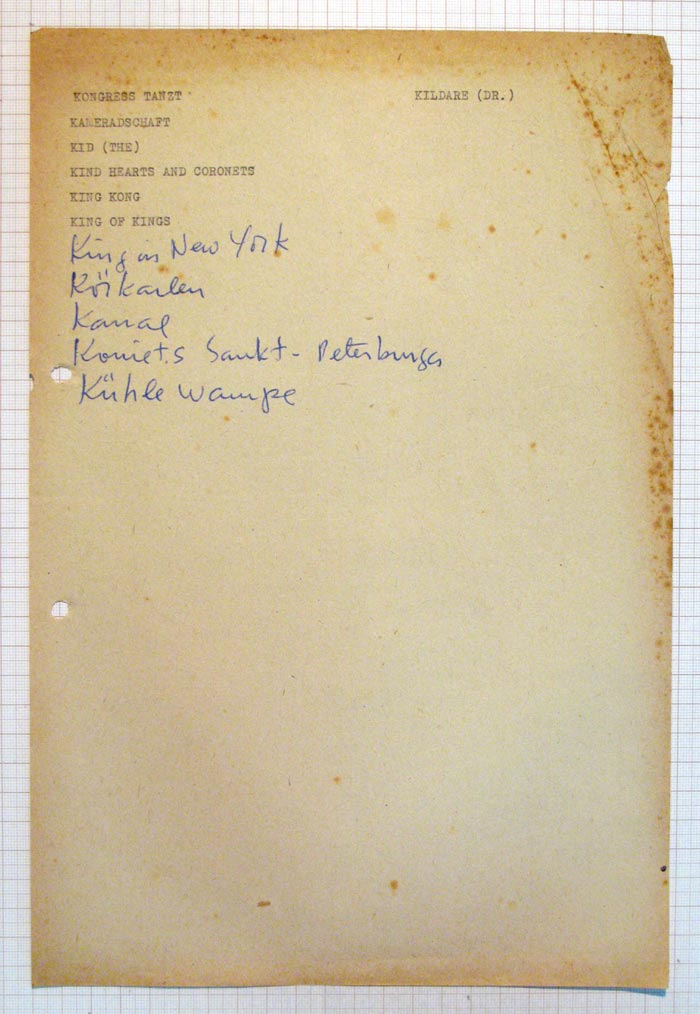 KONGRESS TANZT
KAMERADSCHAFT
KID (THE)
KIND HEARTS AND CORONETS
KING KONG
KING OF KINGS
King in New York
Körkarlen
Kanal
Koniets Sankt-Peterburga
Kühle Wampe
KILDARE (DR.)